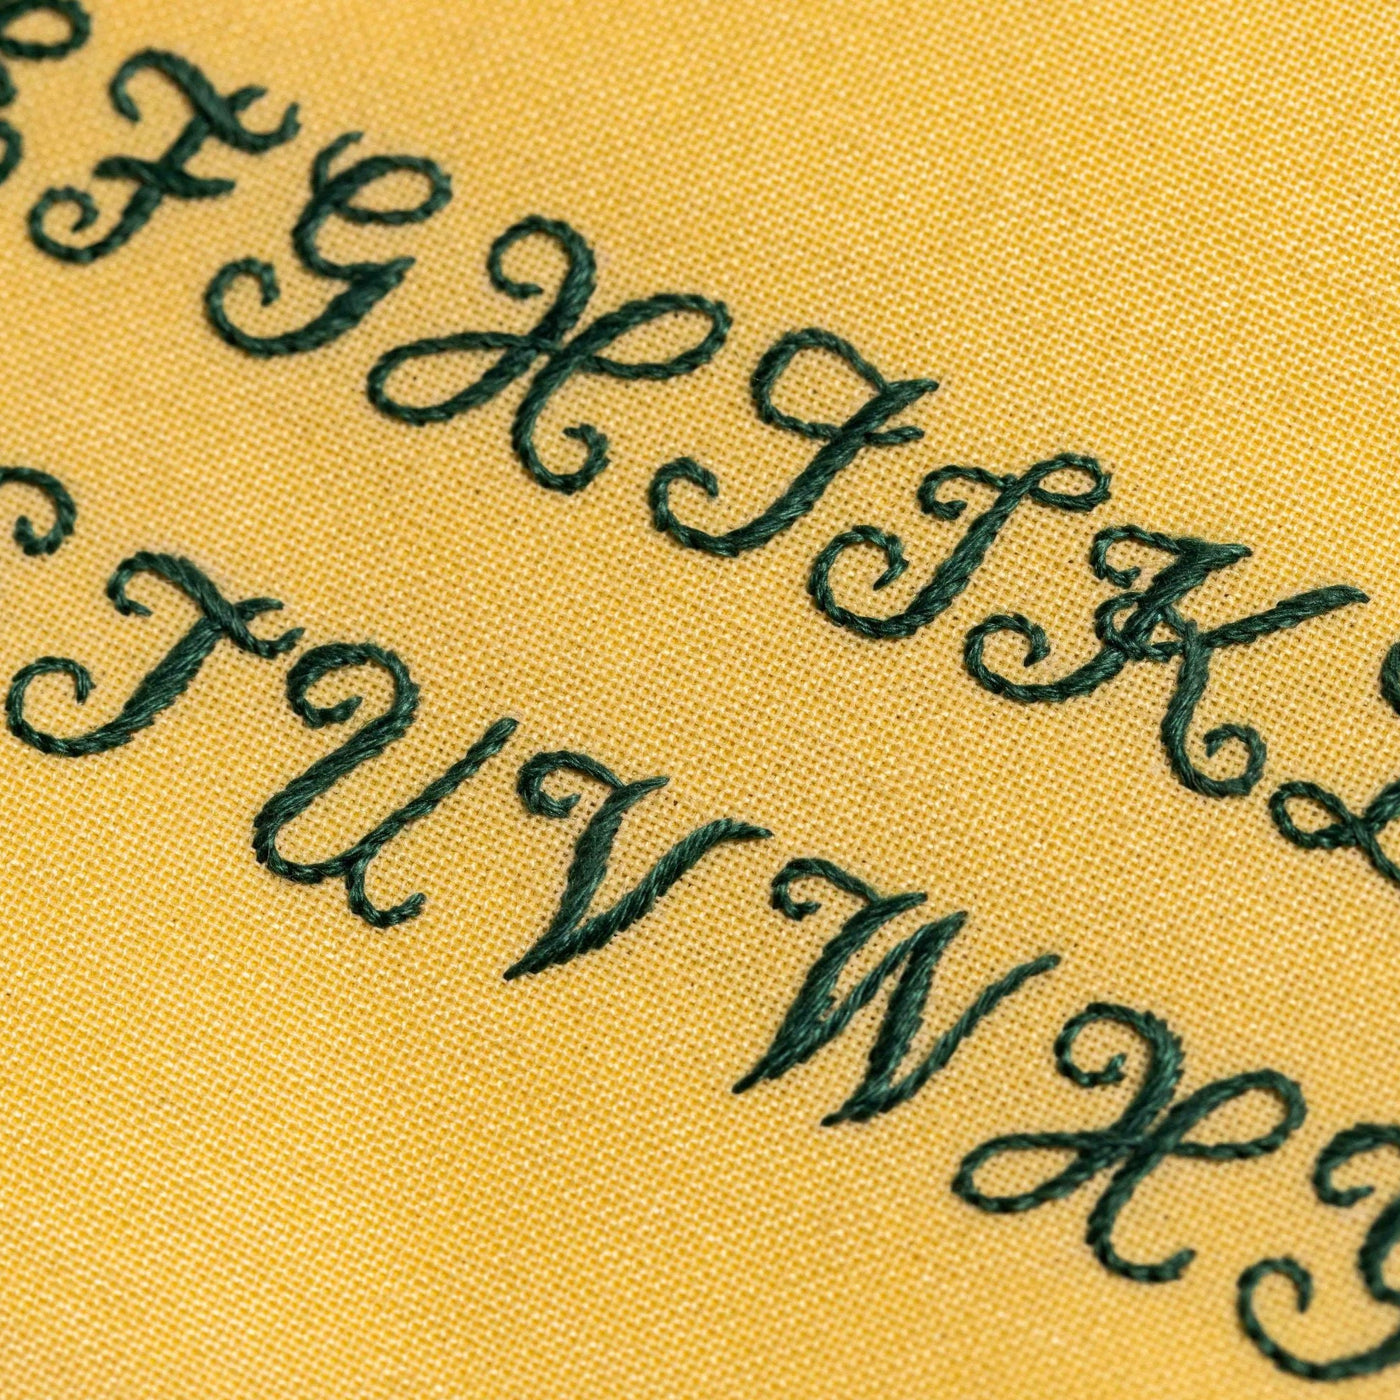 F G H I J K
T U V W X